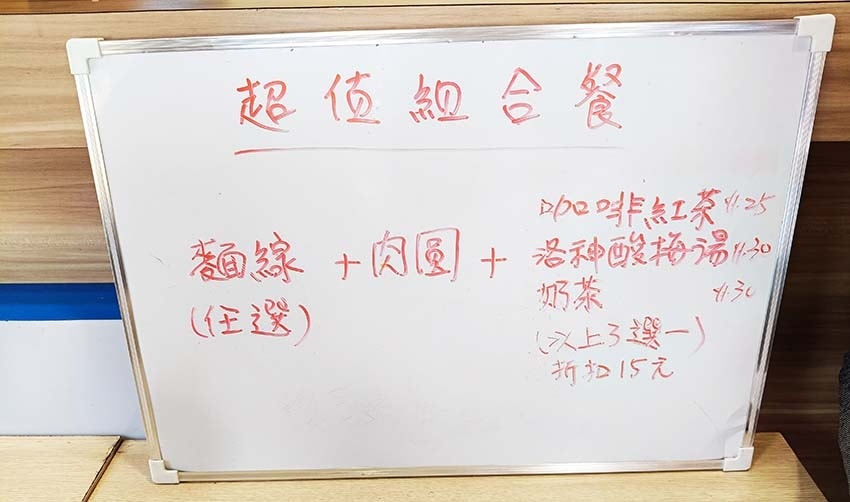 超值組合餐
咖啡紅茶 $25
麵線 + 肉圓 + 洛神酸梅湯 $30
奶茶 $30
(任選)
(以上3選一)
折扣15元